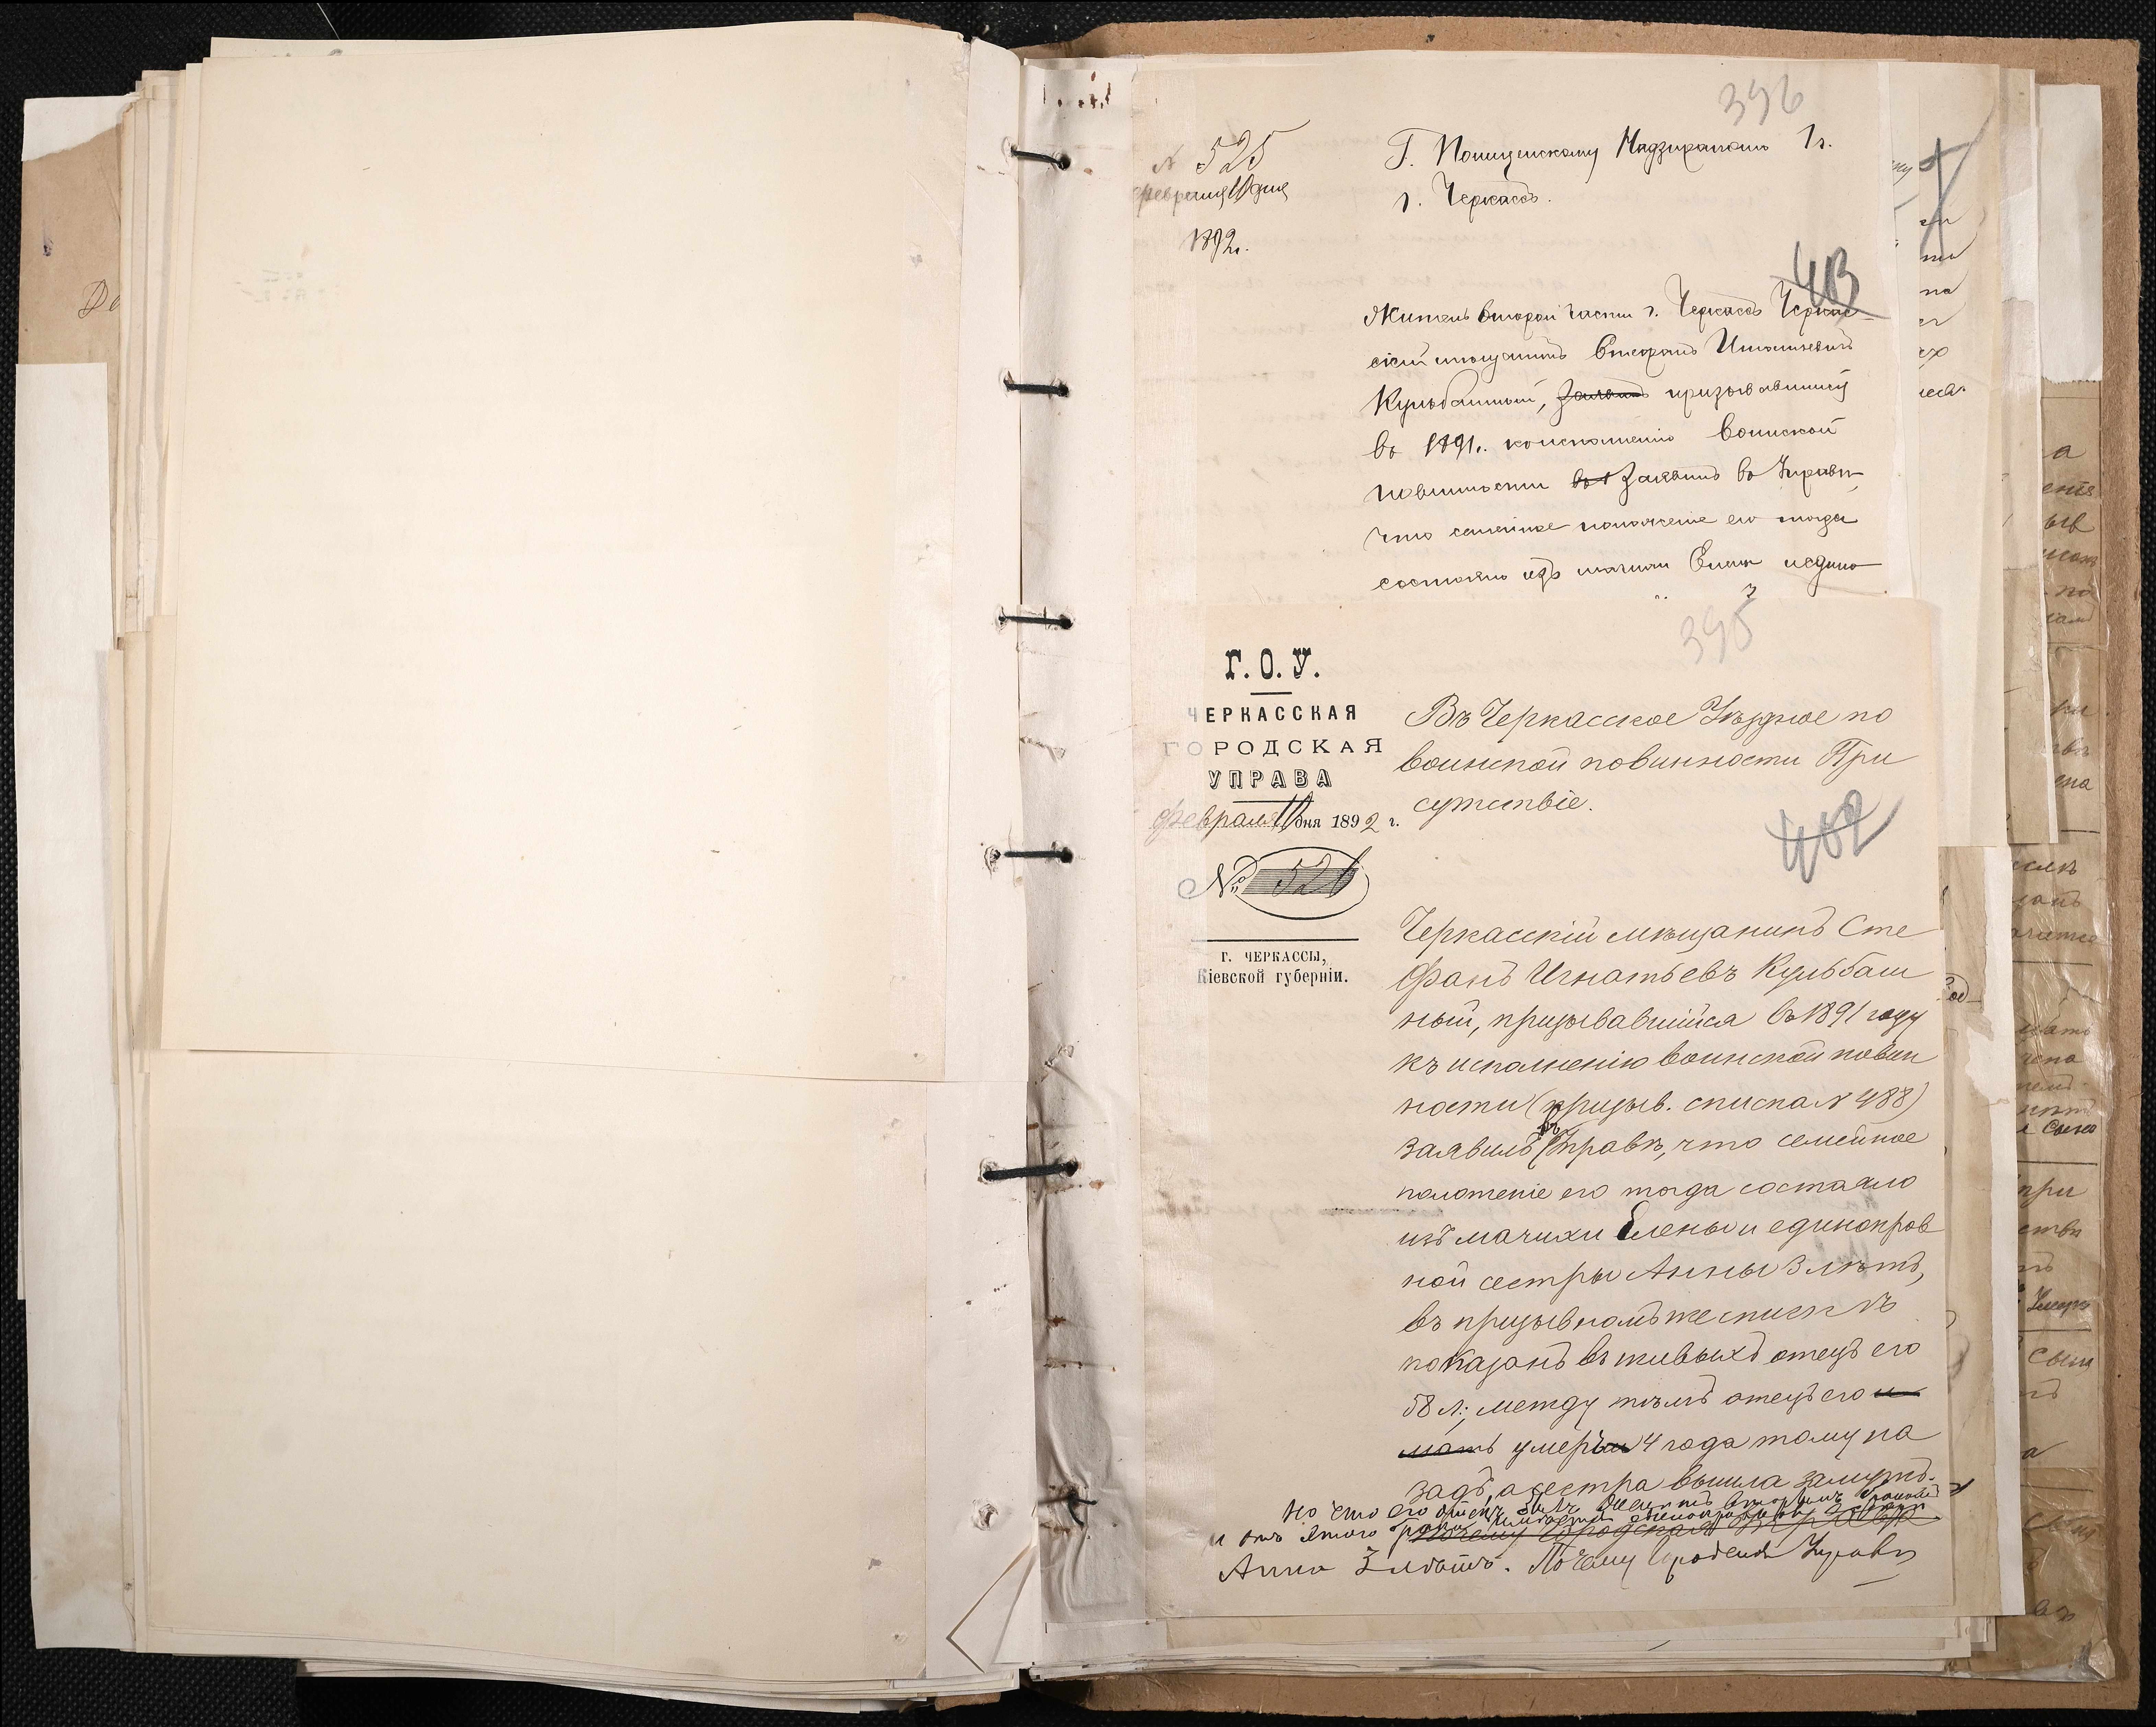 396
N 525
февраля 10 дня
1892 г.
Г. Полицейскому Надзирателю 1 г.
г. Черкассъ.
403
Житель второй части г. Черкассъ Черкас-
скій мѣщанинъ Стефанъ Игнатьевъ
Кульбашный, призывавшійся
въ 1891 г. къ исполненію воинской
повинности заявилъ въ Управѣ,
что семейное положеніе его тогда
состояло изъ мачихи Елены и едино
395
Г.О.У.
ЧЕРКАССКАЯ
ГОРОДСКАЯ
УПРАВА
февраля 10 дня 1892 г.
№ 526
г. ЧЕРКАССЫ,
Кіевской губерніи.
Въ Черкасское Уѣздное по
воинской повинности При
сутствіе.
402
Черкасскій мѣщанинъ Сте
фанъ Игнатьевъ Кульбаш
ный, призывавшійся въ 1891 году
къ исполненію воинской повин
ности (призыв. списка N 488)
заявилъ въ Управѣ, что семейное
положеніе его тогда состояло
изъ мачихи Елены и единокров
ной сестры Анны 3 лѣтъ,
въ призывномъ же спискѣ
показанъ въ живыхъ отецъ его
58 л.; между тѣмъ отецъ его и
мать умеръ 4 года тому на
задъ, а сестра вышла замужъ.
но что его отецъ былъ женатъ вторымъ бракомъ
и отъ этого брака имѣется единокровная сестра
Анна 3 лѣтъ. Почему Городская Управа